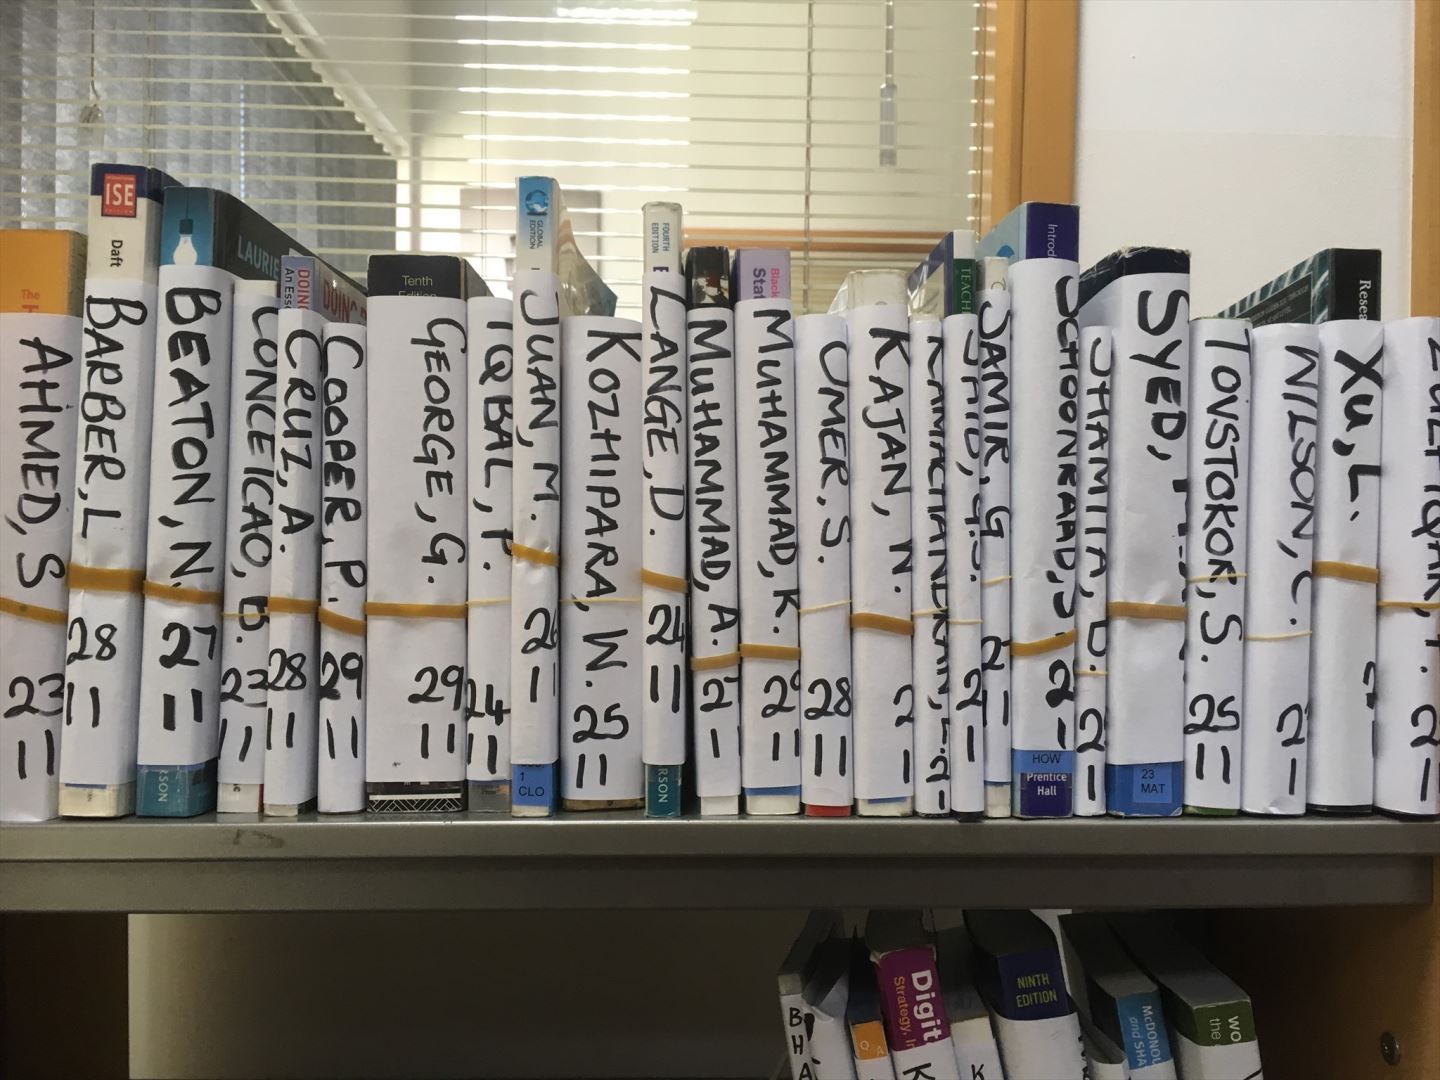 ISE
EDITION
Daft
BARBER, L
28
11
The
AHMED, S
23
11
LAURIE
BEATON, N.
27
11
RSON
CONCEICAO, B.
11
DOING
An Ess
DOING
CRUZ, A.
28
11
COOPER, P.
29
11
Tenth
Edition
GEORGE, G.
29
11
IQBAL, P.
24
11
GLOBAL
EDITION
JUAN, M.
26
1
1
CLO
KOZHIPARA, W.
25
11
FOURTH
EDITION
LANGE, D.
24
11
RSON
MUHAMMAD, A.
2
Black
Stat
MUHAMMAD, K.
2
11
OMER, S.
28
11
KAJAN, N.
2
RAMACHANDRAN,
TEACH
SAID,
2
SAMIR, G
2
11
Introd
SCHOONRAAD, S
2
HOW
Prentice
Hall
SHAMITA, D.
2
SYED,
23
MAT
TOVSTOKOR, S.
25
11
WILSON, C.
2
Resea
XU, L.
ZULFIQAR,
2
BHA
Digit
Strategy, In
K
K
NINTH
EDITION
McDONOU
and SHA
WO
the